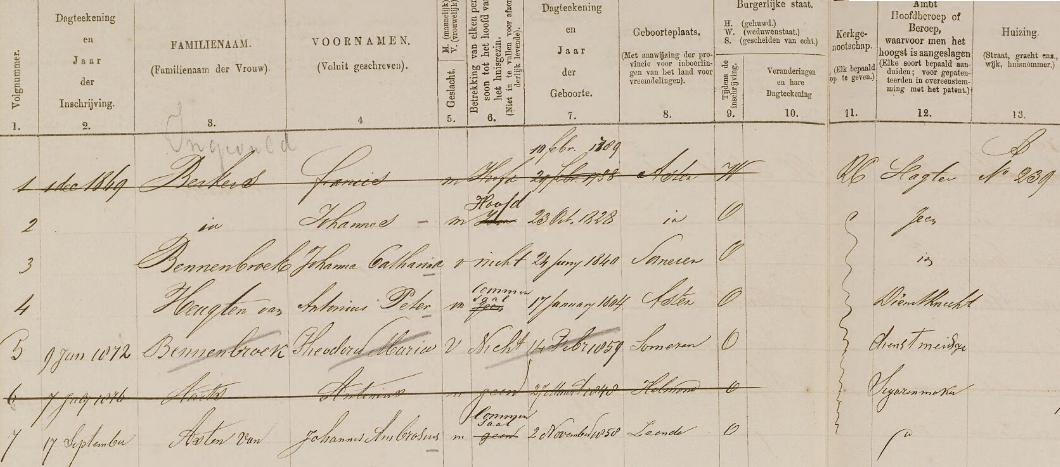 Volgnummer.
Dagteekening en Jaar der Inschrijving.
FAMILIENAAM. (Familienaam der Vrouw).
VOORNAMEN. (Voluit geschreven).
Geslacht. M. (mannelijk) V. (vrouwelijk)
Betrekking van elken persoon tot het hoofd van het huisgezin.
Dagteekening en Jaar der Geboorte.
Geboorteplaats. (Met aanwijzing der provincie voor inboorlingen van het land voor vreemdelingen).
Burgerlijke staat. H. (gehuwd.) W. (weduwenstaat.) S. (gescheiden van echt.)
Tijdens de inschrijving.
Veranderingen en hare Dagteekening
Kerkgenootschap. (Elk bepaald op te geven.)
Ambt Hoofdberoep of Beroep, waarvoor men het hoogst is aangeslagen (Elke soort bepaald aanduiden; voor gepatenteerden in overeenstemming met het patent.)
Huizing. (Straat, gracht enz., wijk, huisnommer.)
1. 2. 3. 4 5. 6. 7. 8. 9. 10. 11. 12. 13.
10 febr. 1889
1 1 dec 1869 m Hoofd Asten W RC No 239
2 Johannes m Hoofd 23 Oct. 1828 O
3 Bennenbroek Johanna Catharina v nicht 24 Juny 1840 Someren O
4 Heugten van Antonius Peter m commensaal 17 January 1844 Asten O Dienstknecht
5 9 Jan 1872 Bennenbroek Theodora Maria V Nicht 14 Febr 1859 Someren O dienstmeisje
6 7 July 1876 Antonius geen Helmond O
7 17 September Asten van Johannes Ambrosius m commensaal geen 2 November 1858 Leende O